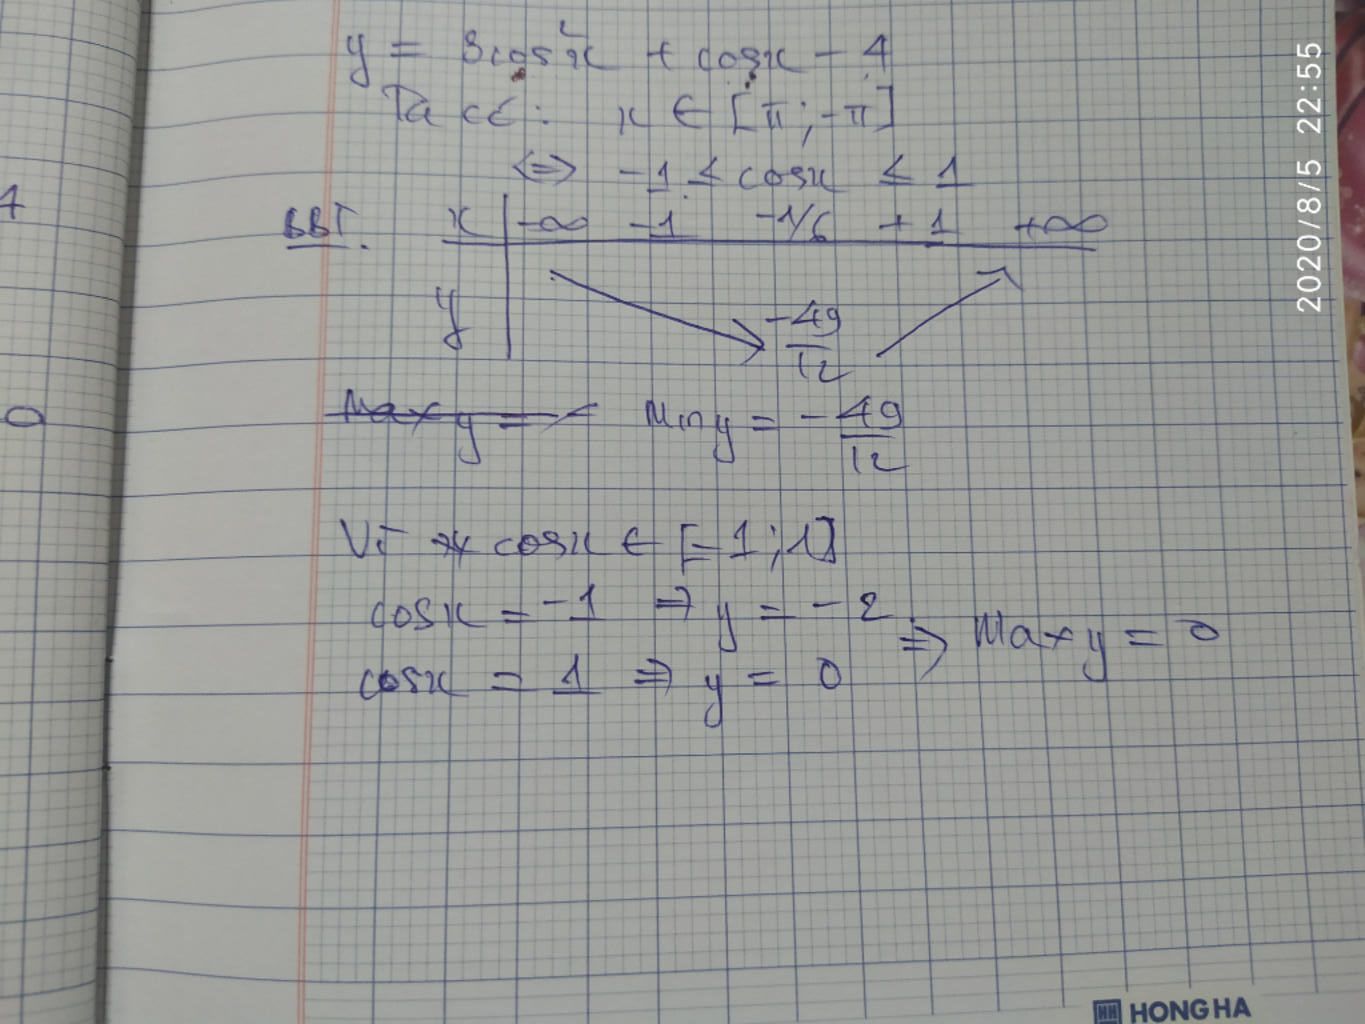 y = 3cos²x + cosx - 4
Ta có: x ∈ [π ; -π]
⇔ -1 ≤ cosx ≤ 1
BBT. x | -∞ -1 -1/6 +1 +∞
y
-49/12
Max y = Min y = -49/12
Vì cosx ∈ [-1 ; 1]
cosx = -1 ⇒ y = -2
⇒ Max y = 0
cosx = 1 ⇒ y = 0
4
0
2020/8/5 22:55
HH HONG HA